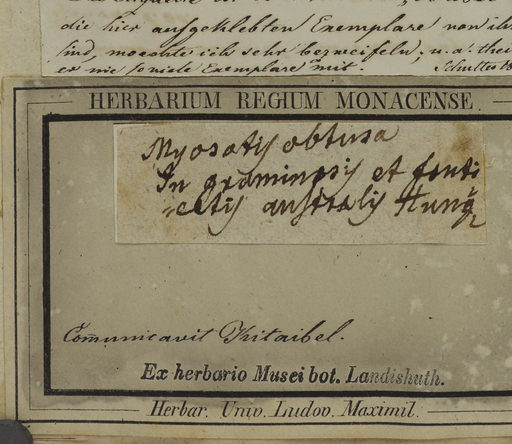 die hier aufgeklebten Exemplare von ih
sind, moechte ich sehr bezweifeln, u. a. thei
er nie so viele Exemplare mit. Schultes
HERBARIUM REGIUM MONACENSE
Myosotis obtusa
In graminosis et fruti
cetis australis Hung
Com̄unicavit Kitaibel.
Ex herbario Musei bot. Landishuth.
Herbar. Univ. Ludov. Maximil.